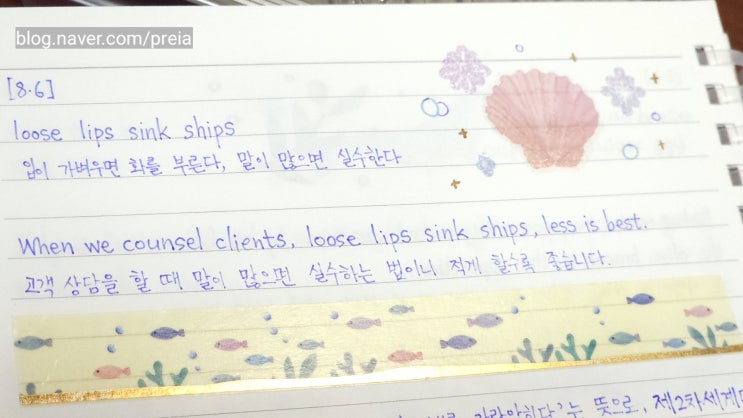 blog.naver.com/preia
[8.6]
loose lips sink ships
입이 가벼우면 화를 부른다, 말이 많으면 실수한다
When we counsel clients, loose lips sink ships, less is best.
고객 상담을 할 때 말이 많으면 실수하는 법이니 적게 할수록 좋습니다.
가라앉히다'는 뜻으로, 제2차세계